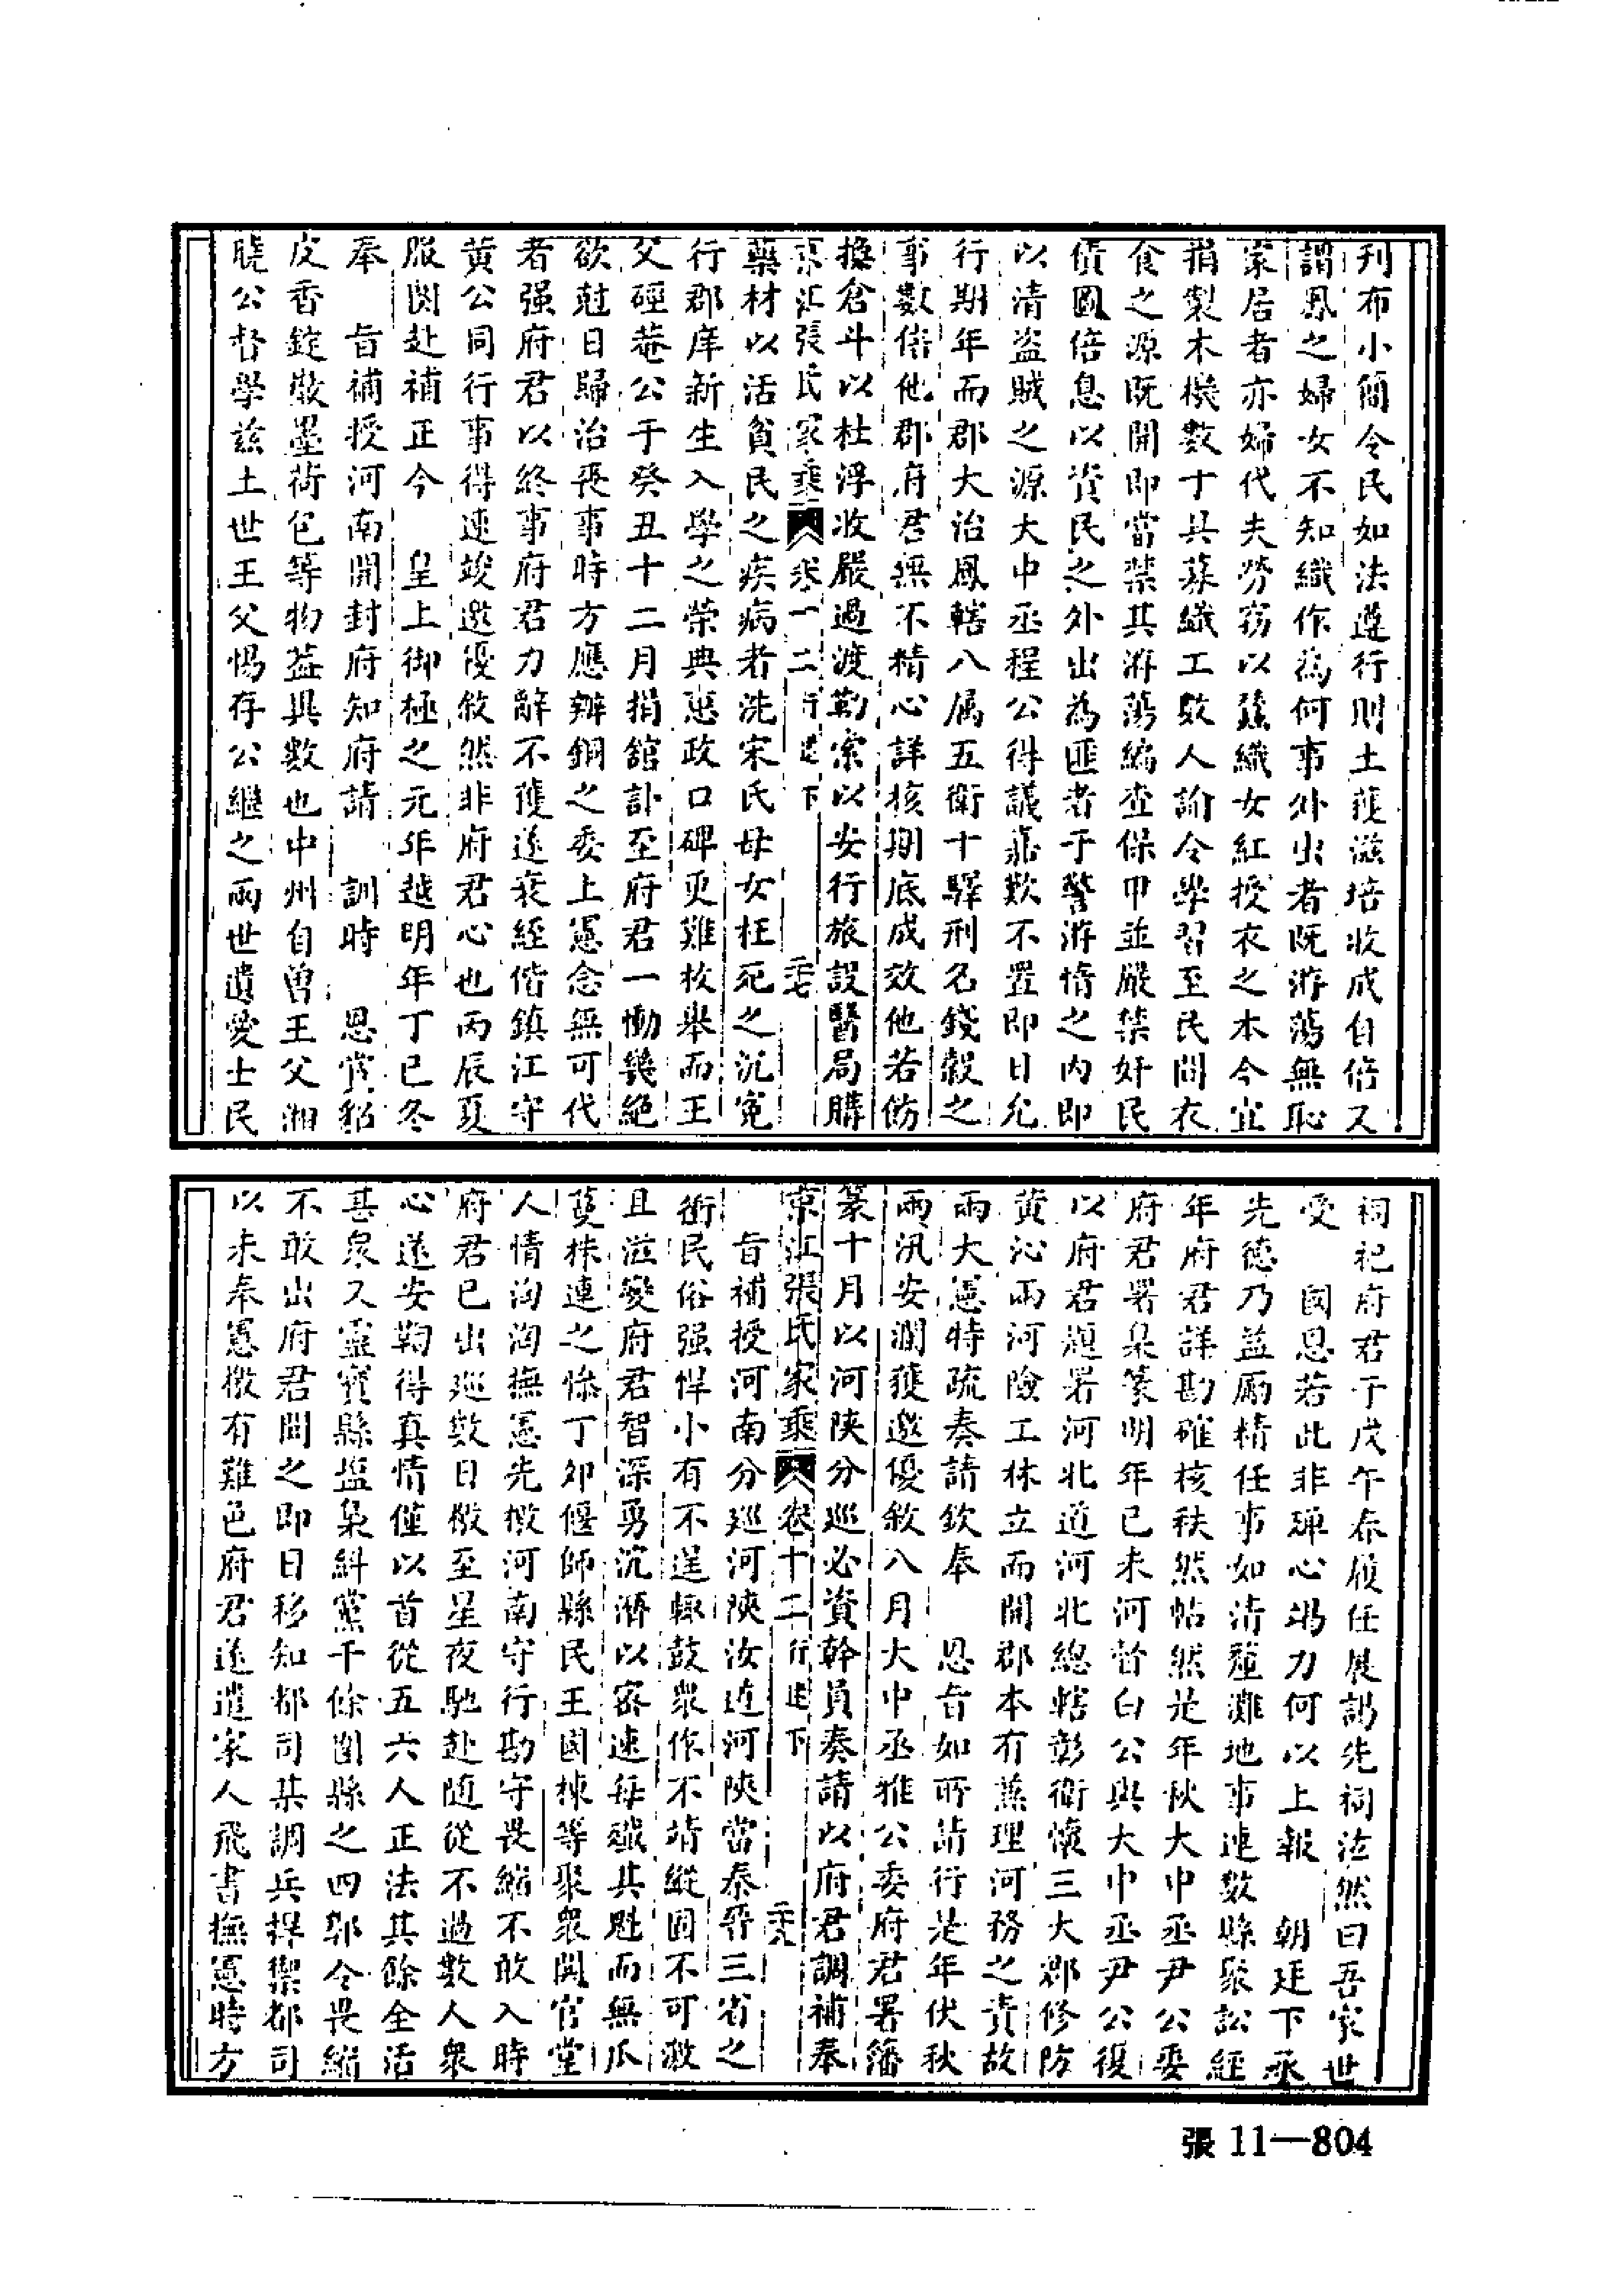 刋布小簡令民如法遵行則土蓰滋培收成自倍又
謂鳳之婦女不知織作為何事外出者既游蕩無恥
家居者亦婦代夫勞窃以蠶織女紅授衣之本今宜
捐製木機數十具募織工數人諭令學習至民間衣
食之源既開即當禁其游蕩編查保甲並嚴禁奸民
債圖倍息以資民之外出為匪者于警游惰之內即
以清盗賊之源大中丞程公得議嘉歎不置即日允
行期年而郡大治鳳轄八属五衛十驛刑名錢穀之
事數倍他郡府君無不精心詳核期底成效他若飭
換倉斗以杜浮收嚴過渡勒索以安行旅設醫局購
京江張氏家乘 卷十二行述下 二七
藥材以活貧民之疾病者洗宋氏母女枉死之沉寃
行郡庠新生入學之荣典惠政口碑更難枚舉而王
父硜菴公于癸丑十二月捐舘訃至府君一慟幾絕
欲尅日歸治丧事時方應辦銅之委上憲念無可代
者强府君以終事府君力辭不獲遂衰絰偕鎮江守
黃公同行事得速竣邀優敘然非府君心也丙辰夏
服闋赴補正今 皇上御極之元年越明年丁巳冬
奉 旨補授河南開封府知府請 訓時 恩賞貂
皮香錠徽墨荷包等物葢異數也中州自曾王父湘
曉公督學兹土世王父惕存公繼之兩世遺愛士民
祠祀府君于戊午春履任展謁先祠泫然曰吾家世
受 國恩若此非殫心竭力何以上報 朝廷下承
先德乃益勵精任事如清釐灘地事連數縣聚訟經
年府君詳勘確核秩然帖然是年秋大中丞尹公委
府君署臬篆明年已未河督白公與大中丞尹公復
以府君題署河北道河北總轄彰衛懷三大郡修防
黃沁兩河險工林立而開郡本有兼理河務之責故
兩大憲特疏奏請欽奉 恩旨如所請行是年伏秋
兩汛安瀾獲邀優敘八月大中丞雅公委府君署藩
篆十月以河陝分巡必資幹員奏請以府君調補奉
京江張氏家乘 卷十二行述下 二八
旨補授河南分巡河陝汝道河陝當秦晉三省之
衝民俗强悍小有不逞輒鼓衆作不靖縱圄不可激
且滋變府君智深勇沉濟以審速每殲其魁而無瓜
蔓株連之慘丁卯偃師縣民王國棟等聚衆鬨官堂
人情洶洶撫憲先檄河南守行勘守畏縮不敢入時
府君已出廵數日檄至星夜馳赴随從不過數人衆
心遂安鞫得真情僅以首從五六人正法其餘全活
甚衆又靈寶縣塩梟糾黨千餘圍縣之四郭令畏縮
不敢出府君聞之即日移知都司某調兵捍禦都司
以未奉憲檄有難色府君遂遣家人飛書撫憲時方
張 11—804